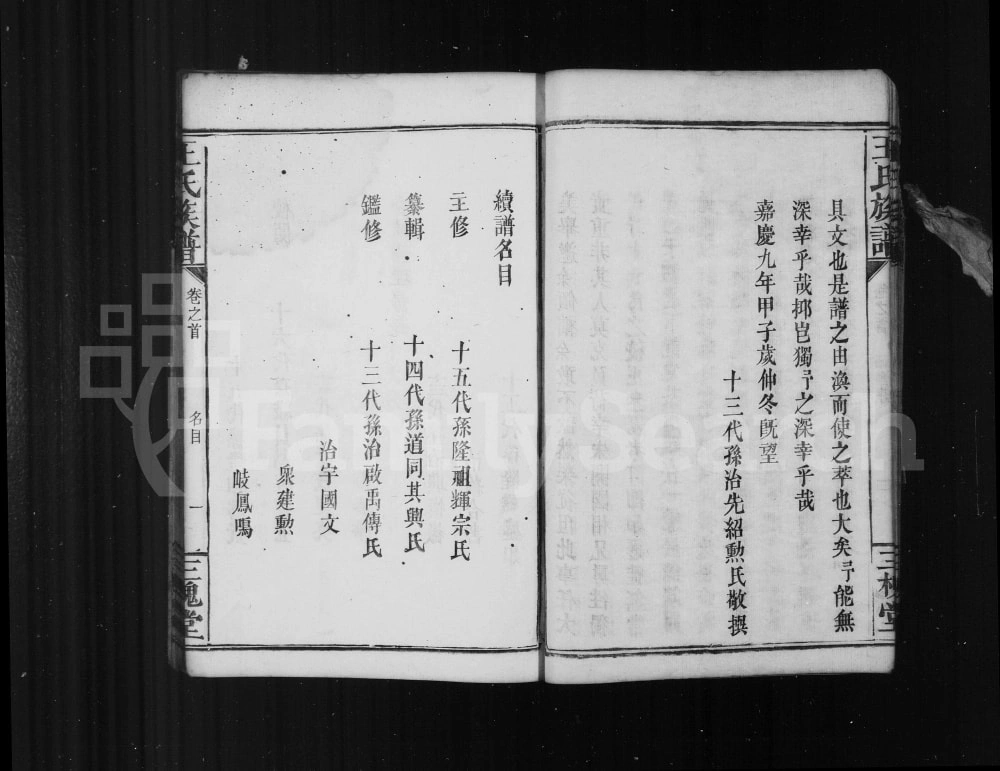 王氏族譜
三槐堂
具文也是譜之由渙而使之萃也大矣予能無
深幸乎哉抑豈獨予之深幸乎哉
嘉慶九年甲子歲仲冬既望
十三代孫治先紹勲氏敬撰
續譜名目
主修 十五代孫隆祖輝宗氏
纂輯 十四代孫道同其興氏
鑑修 十三代孫治啟禹傳氏
治宇國文
衆建勲
岐鳳鳴
王氏族譜
卷之首
名目
一
三槐堂
FamilySearch